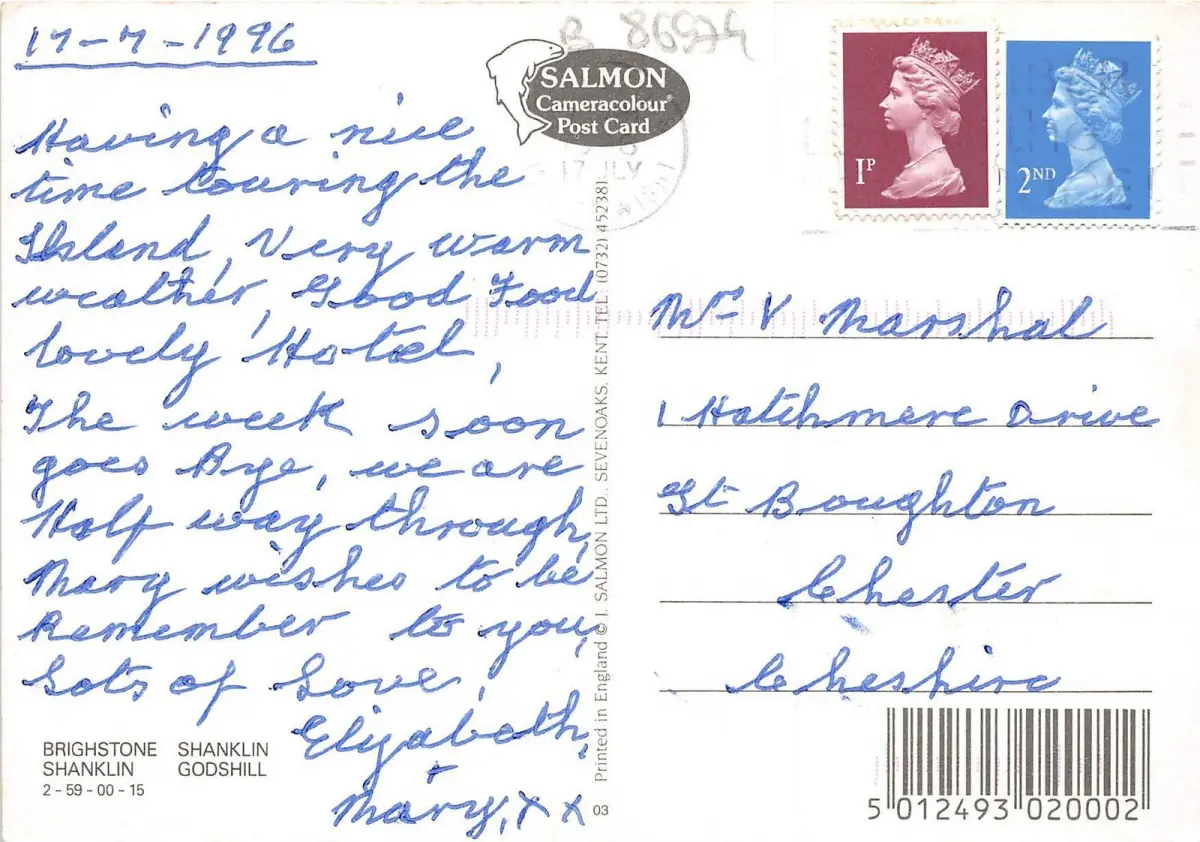 17-7-1996
Having a nice
time touring the
Island, Very warm
weather, Good Food
lovely Hotel,
The week soon
goes Bye, we are
Half way through,
Mary wishes to be
Remember to you,
Lots of Love,
Elizabeth,
+
Mary, X X
BRIGHSTONE SHANKLIN
SHANKLIN GODSHILL
2-59-00-15
B 86974
SALMON
Cameracolour®
Post Card
17 JLY
Printed in England © J. SALMON LTD., SEVENOAKS, KENT. TEL: (0732) 452381
03
1P
2ND
Mrs V Marshal
1 Hatchmere Drive
Gt Boughton
Chester
Cheshire
5 012493 020002